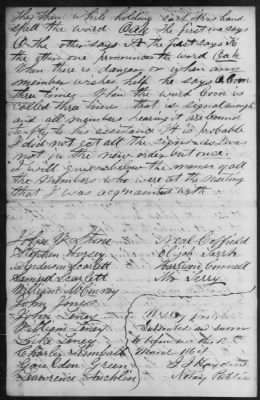 they then while holding each others hand
spell the word Oak the first one says
O the other says A the first says K
the other one pronounces the word Oak
When there is danger or when any
member wishes help he says O Oom
three times. When the word Oom is
called three times that is signal enough
and all members hearing it are bound
to fly to his assistance It is probable
I did not get all the signs as I was
not in the new order but once.
I will give below the names of all
the members who were at the meeting
that I was acquainted with.
John H Stone
Stephen Horsey
Anderson Scarlett
Samuel Scarlett
William McCurray
John Jones
John Toney
William Toney
Like Toney
Charley Kimball
Goulden Green
Lawrence
Noral Coffield
Elijah
Harrison Connell
Mr Terry
Subscribed and sworn
to before me this
1864
Notary Public